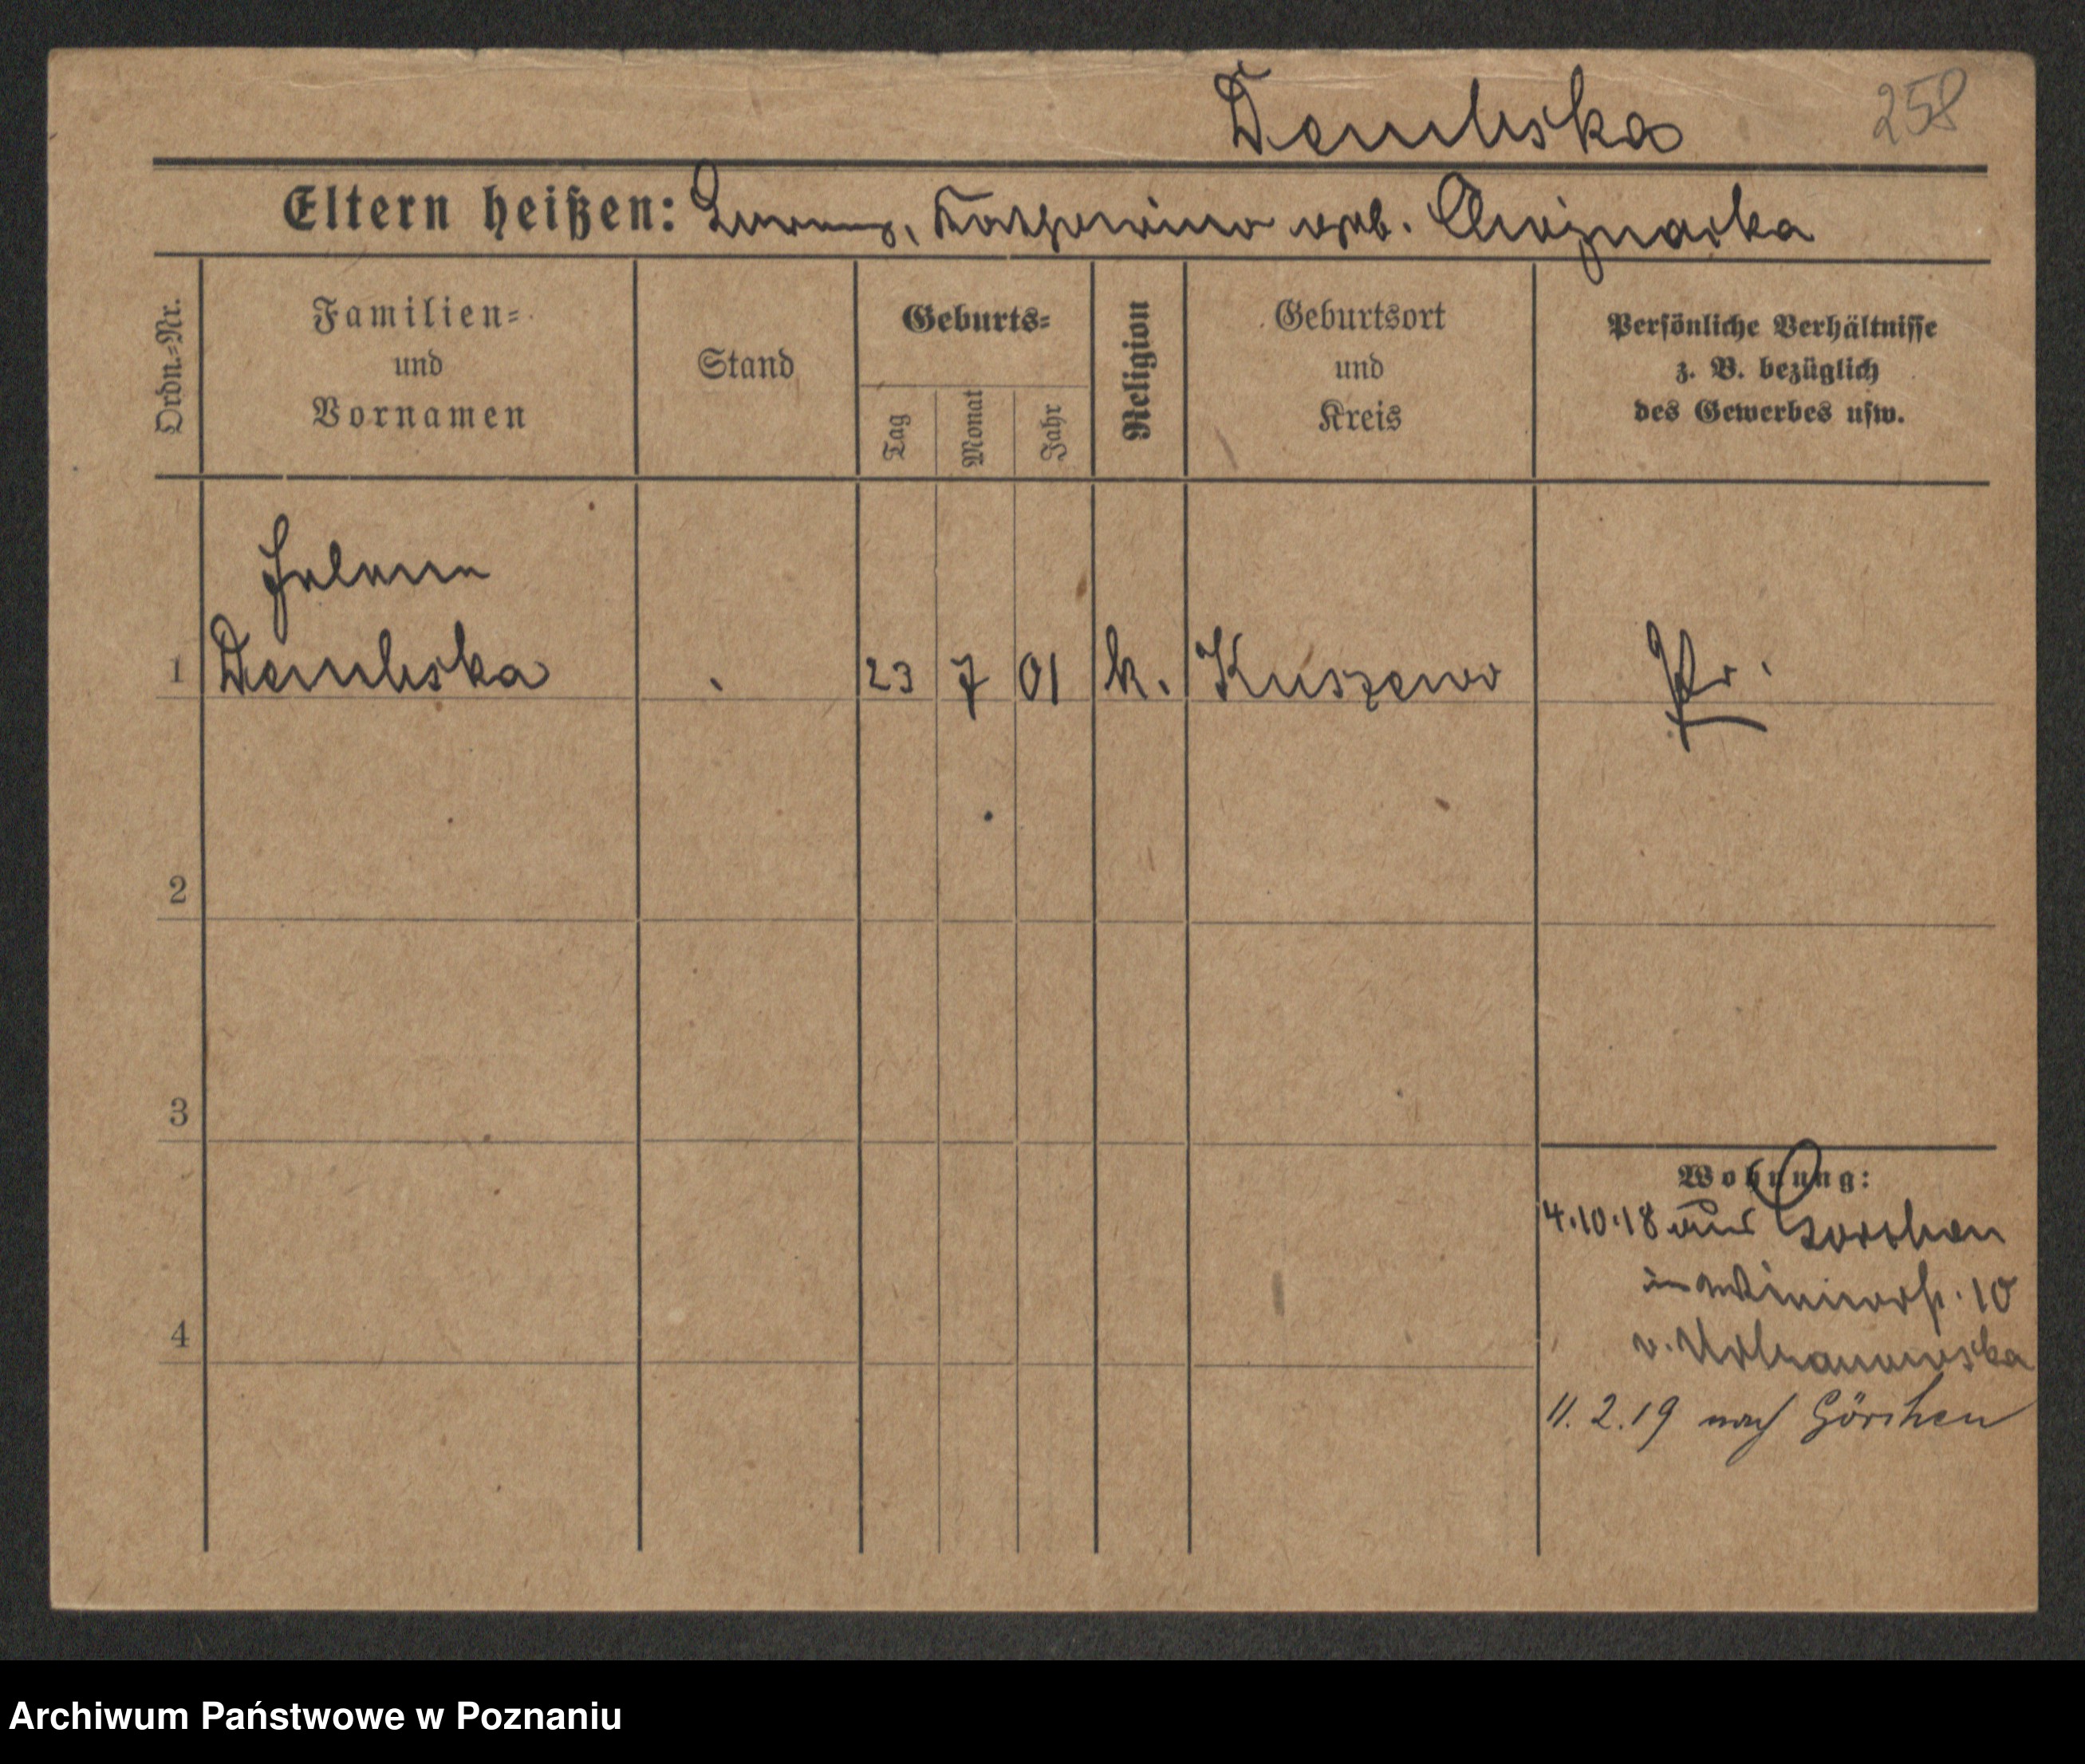 Dembska 258
Eltern heißen: Lorenz, Katharina geb.
Ordn.-Nr.
Familien-
und
Vornamen
Stand
Geburts-
Tag
Monat
Jahr
Religion
Geburtsort
und
Kreis
Persönliche Verhältnisse
z. B. bezüglich
des Gewerbes usw.
Helene
1 Dembska 23 7 01 k. Kuszewo Pr.
2
3
4
Wohnung:
4.10.18 aus Gorchen
10
v. Urbanowska
11.2.19 nach Görchen
Archiwum Państwowe w Poznaniu